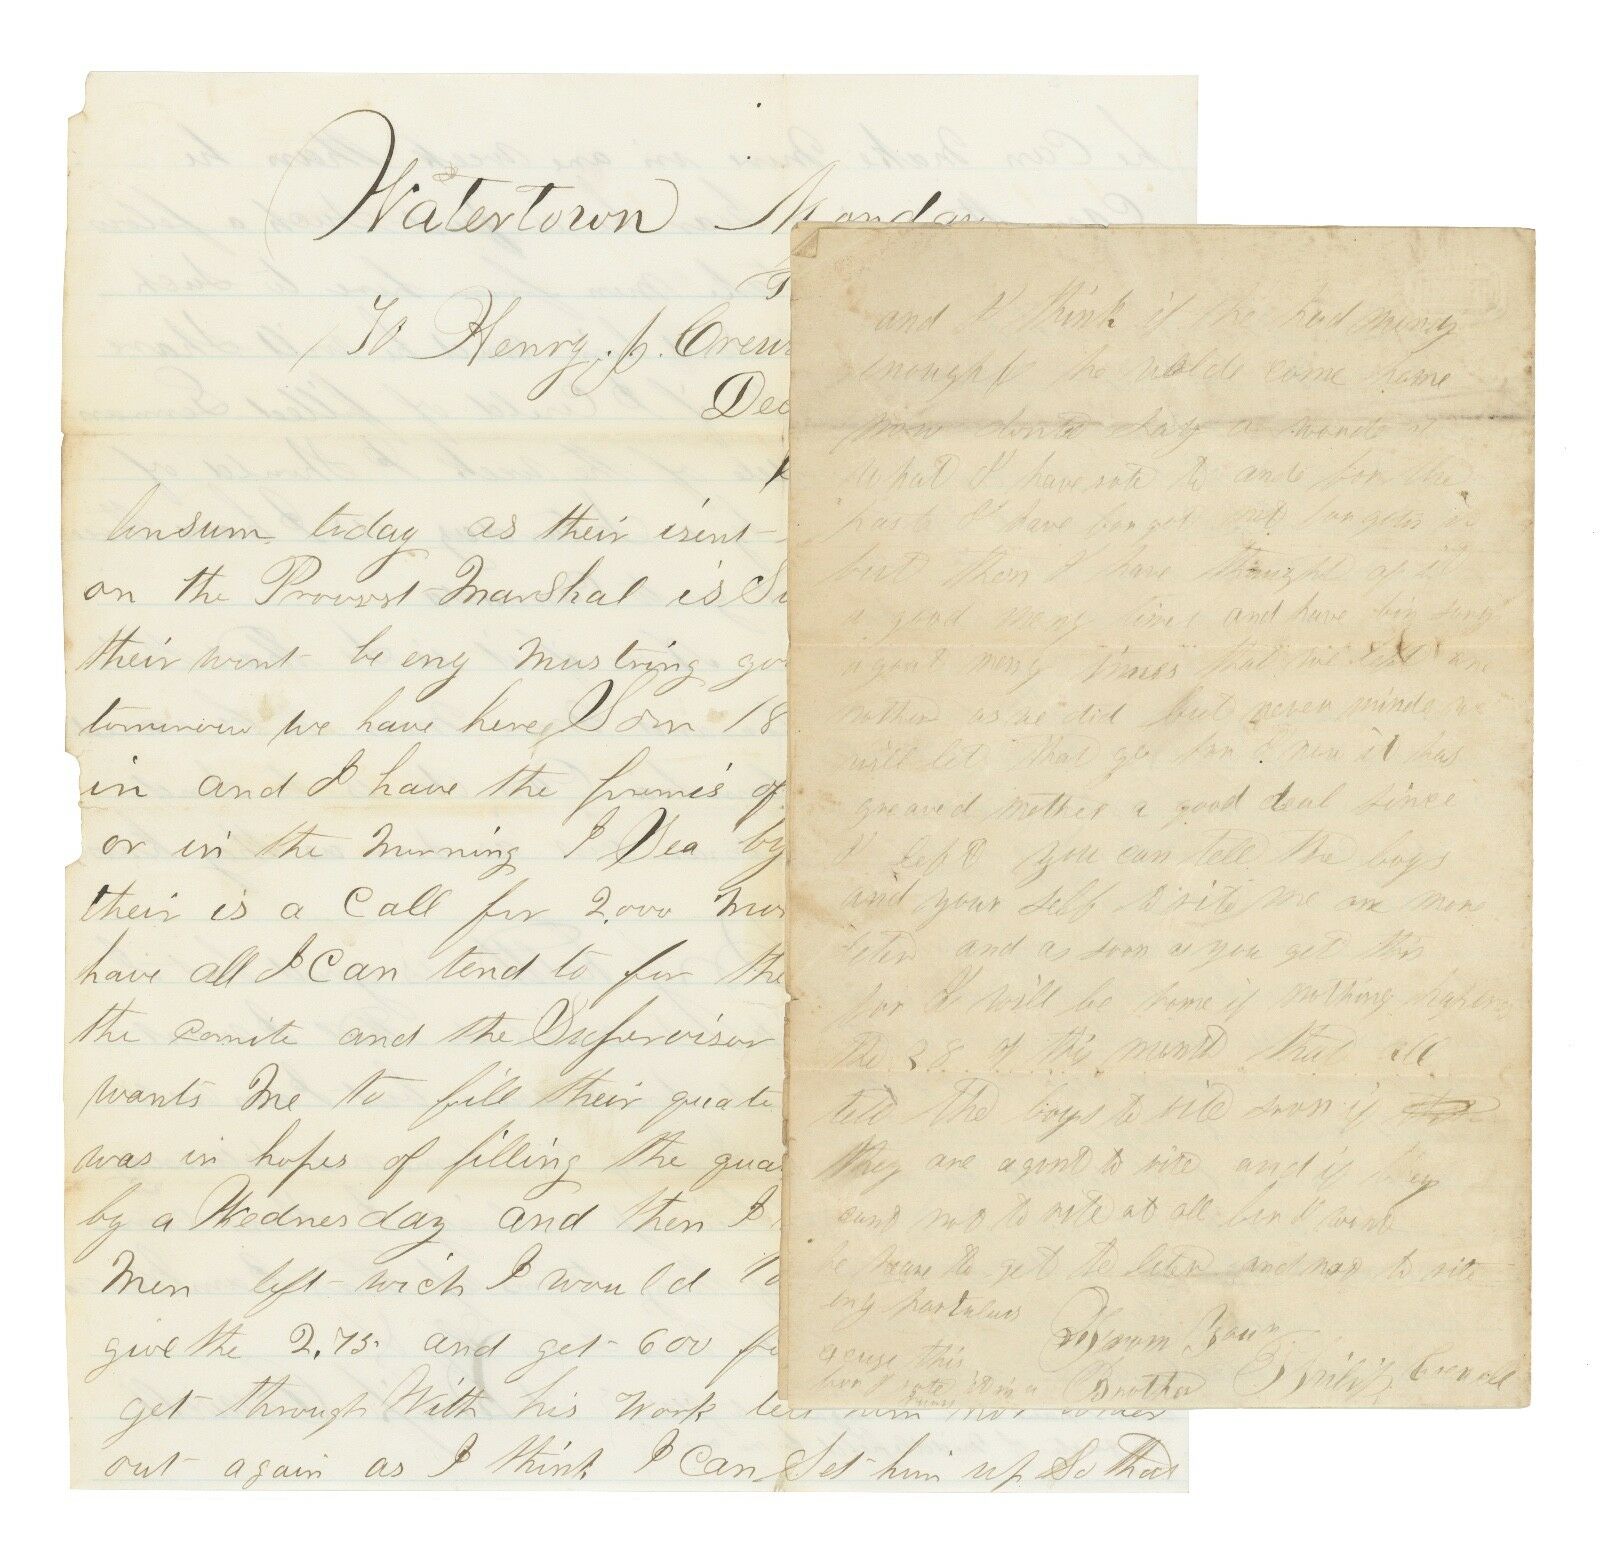 Watertown Monday
To Henry. J. Crew
Dec
Unsum today as their isent
on the Provost Marshal is S
their wont be eny Mustring go
tomorrow We have here Som 18
in and I have the promis of
or in the Morning I Sea by
their is a Call for 2,000 Mor
have all I Can tend to for the
the comite and the Supervisor
wants Me to fill their quate
was in hopes of filling the qua
by a Wednesday and then I
Men left wich I would
give the 2.75 and get 600 f
get through With his Work tell him not to
out again as I think I Can Set him up So That
and I think if he had meny
enought he wolde come home
now donte say a worde
what I have rote to ande for the
part I have forget
but then I have thought of it
a good meny times and have bin sory
a good meny times that we left one
nother as we did but never minde we
will let that go for I now it has
greaved mother a good deal since
I left you can tell the boys
and your self to rite me one more
leter and as soon as you get this
for I will be home if nothing hapens
the 28 of this month that all
tell the boys to rite soon if
they are agont to rite and if they
ant not to rite at all for I wont
be here to get the leter and not to rite
eny
from your
Brother Philip
excuse this
for I rote it in a